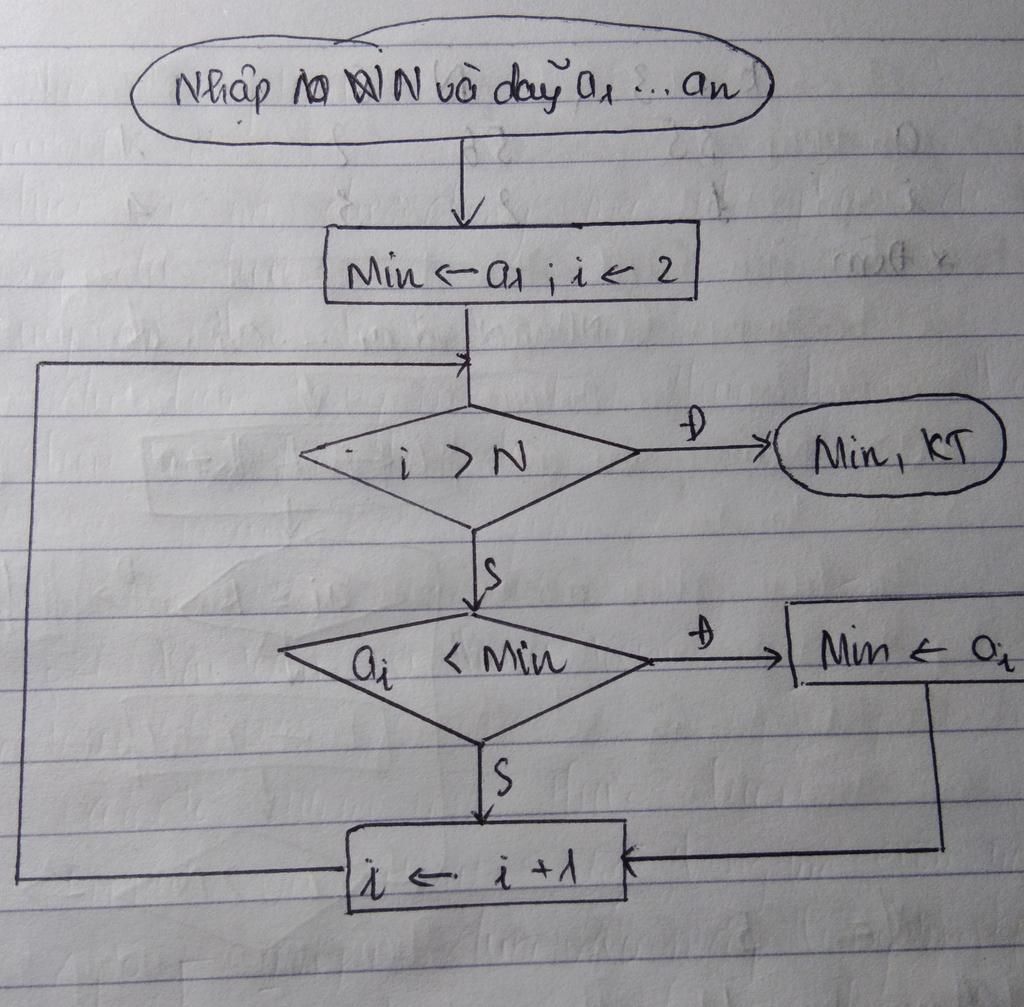 Nhập N và dãy a1 ... an
Min ← a1 ; i ← 2
i > N
Đ
Min, KT
S
ai < Min
Đ
Min ← ai
S
i ← i + 1